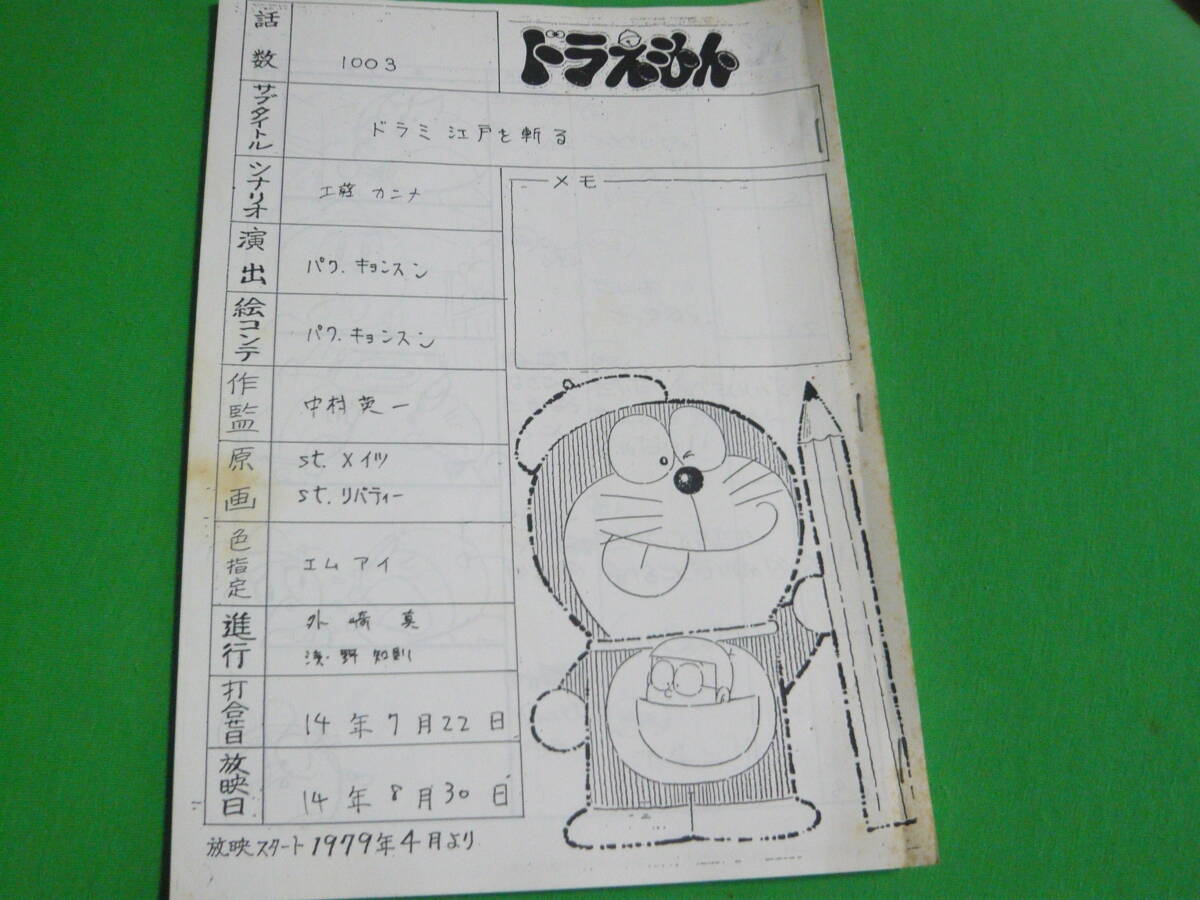 話数
1003
ドラえもん
サブタイトル
ドラミ 江戸を斬る
シナリオ
工藤 カンナ
メモ
演出
パク.キョンスン
絵コンテ
パク.キョンスン
作監
中村英一
原画
st.メイツ
st.リバティー
色指定
エムアイ
進行
外崎 真
浅野 知則
打合せ日
14年7月22日
放映日
14年8月30日
放映スタート1979年4月より